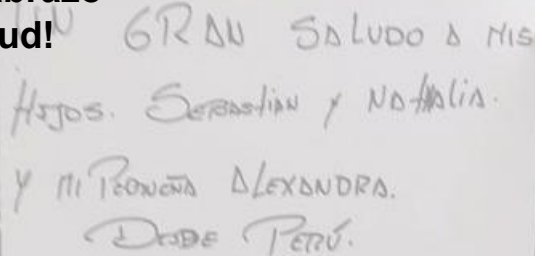 ud!
UN GRAN SALUDO A MIS
HIJOS. SEBASTIAN Y NATHALIA.
Y MI PEQUEÑA ALEXANDRA.
DESDE PERÚ.